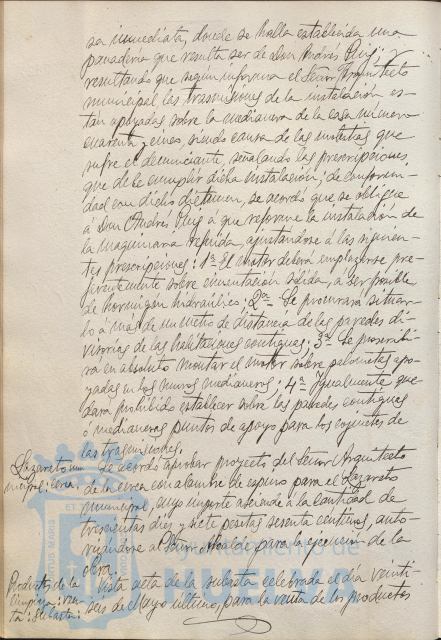 sa inmediata, donde se halla establecida una
panaderia que resulta ser de Don Andrés Puig y
resultando que segun informa el Señor Arquitecto
municipal las trasmisiones de la instalación es-
tan apoyadas sobre la medianera de la casa número
cuarenta y cinco, siendo causa de las molestias que
sufre el denunciante, señalando las prescripciones,
que debe cumplir dicha instalación; de conformi-
dad con dicho dictamen, se acordó que se obligue
á Don Andrés Puig á que reforme la instalación de
la maquinaria referida, ajustandose á las siguien-
tes prescripciones: 1ª El motor deberá emplazarse pre-
ferentemente sobre cimentación sólida, á ser posible
de hormigón hidraúlico; 2ª Se procurará situar-
lo á más de un metro de distancia de las paredes di-
visorias de las habitaciones contiguas; 3ª Se proscribi-
rá en absoluto montar el motor sobre palomillas apo-
yadas en los muros medianeros; 4ª Igualmente que-
dará prohibido establecer sobre las paredes contiguas
ó medianeras puntos de apoyo para los cojinetes de
las trasmisiones.
Lazareto mu-
nicipal: cerca.
Se acordó aprobar proyecto del Señor Arquitecto
de la cerca con alambre de espino para el Lazareto
municipal, cuyo importe asciende á la cantidad de
trescientas diez y siete pesetas sesenta céntimos, auto-
rizandose al Señor Alcalde para la ejecución de la
obra.
Productos de la
limpieza: ven-
ta: Subasta:
Vista acta de la subasta celebrada el día veinti
seis de Mayo último, para la venta de los productos
Ayuntamiento de
HUELVA